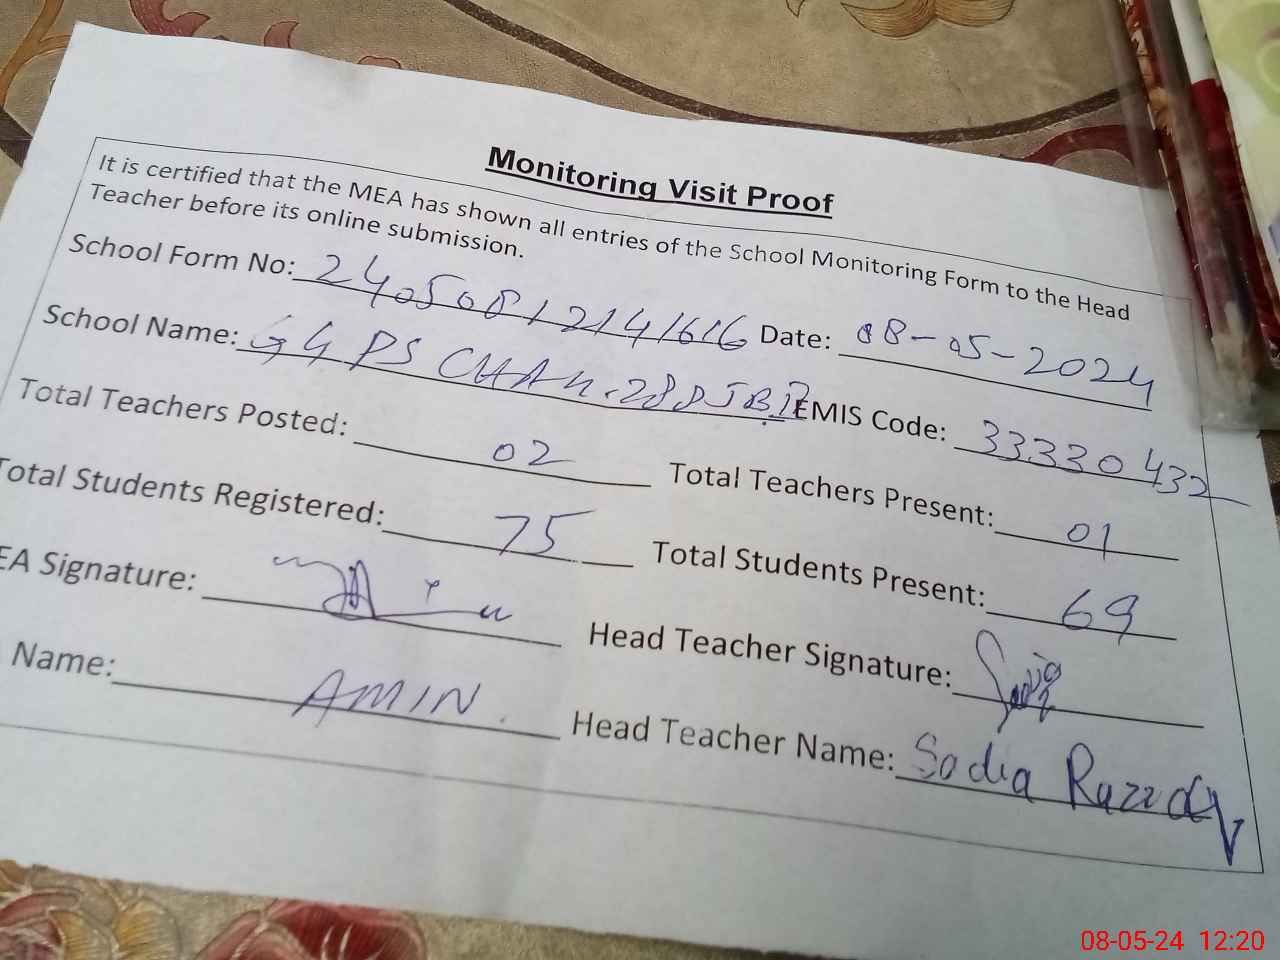 Monitoring Visit Proof
It is certified that the MEA has shown all entries of the School Monitoring Form to the Head
Teacher before its online submission.
School Form No: 24050812141616 Date: 08-05-2024
School Name: GGPS CHAK.288JB.I EMIS Code: 33330432
Total Teachers Posted: 02 Total Teachers Present: 01
Total Students Registered: 75 Total Students Present: 69
EA Signature: Head Teacher Signature:
Name: AMIN. Head Teacher Name: Sadia Razzaq
08-05-24 12:20